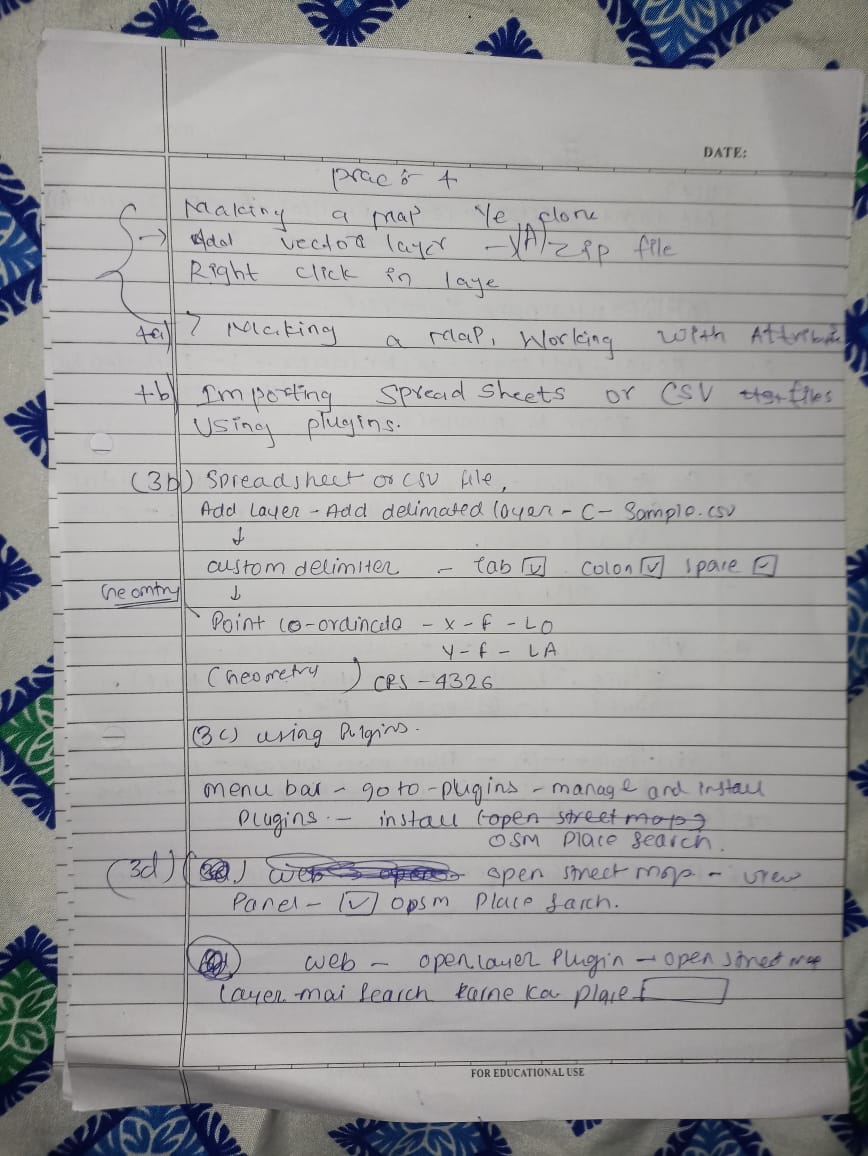 DATE:
prac 4
Making a map Ye done
Add vector layer - zip file
Right click in laye
4a) Making a map, Working with Attribute
4b) Importing Spread Sheets or CSV files
Using plugins.
(3b) Spreadsheet or CSV file,
Add Layer - Add delimated layer - C - Sample.csv
↓
custom delimiter - tab ☑ Colon ☑ space ☑
Geomtry ↓
Point co-ordincda - X - f - LO
Y - f - LA
(Geometry) CRS - 4326
(3c) using Pulgins.
menu bar - go to - plugins - manage and install
Plugins. - install (open street map)
OSM Place search.
(3d) open street map - view
Panel - ☑ opsm Place sarch.
web - openlayer Plugin → open street map
layer mai search karne ka place
FOR EDUCATIONAL USE